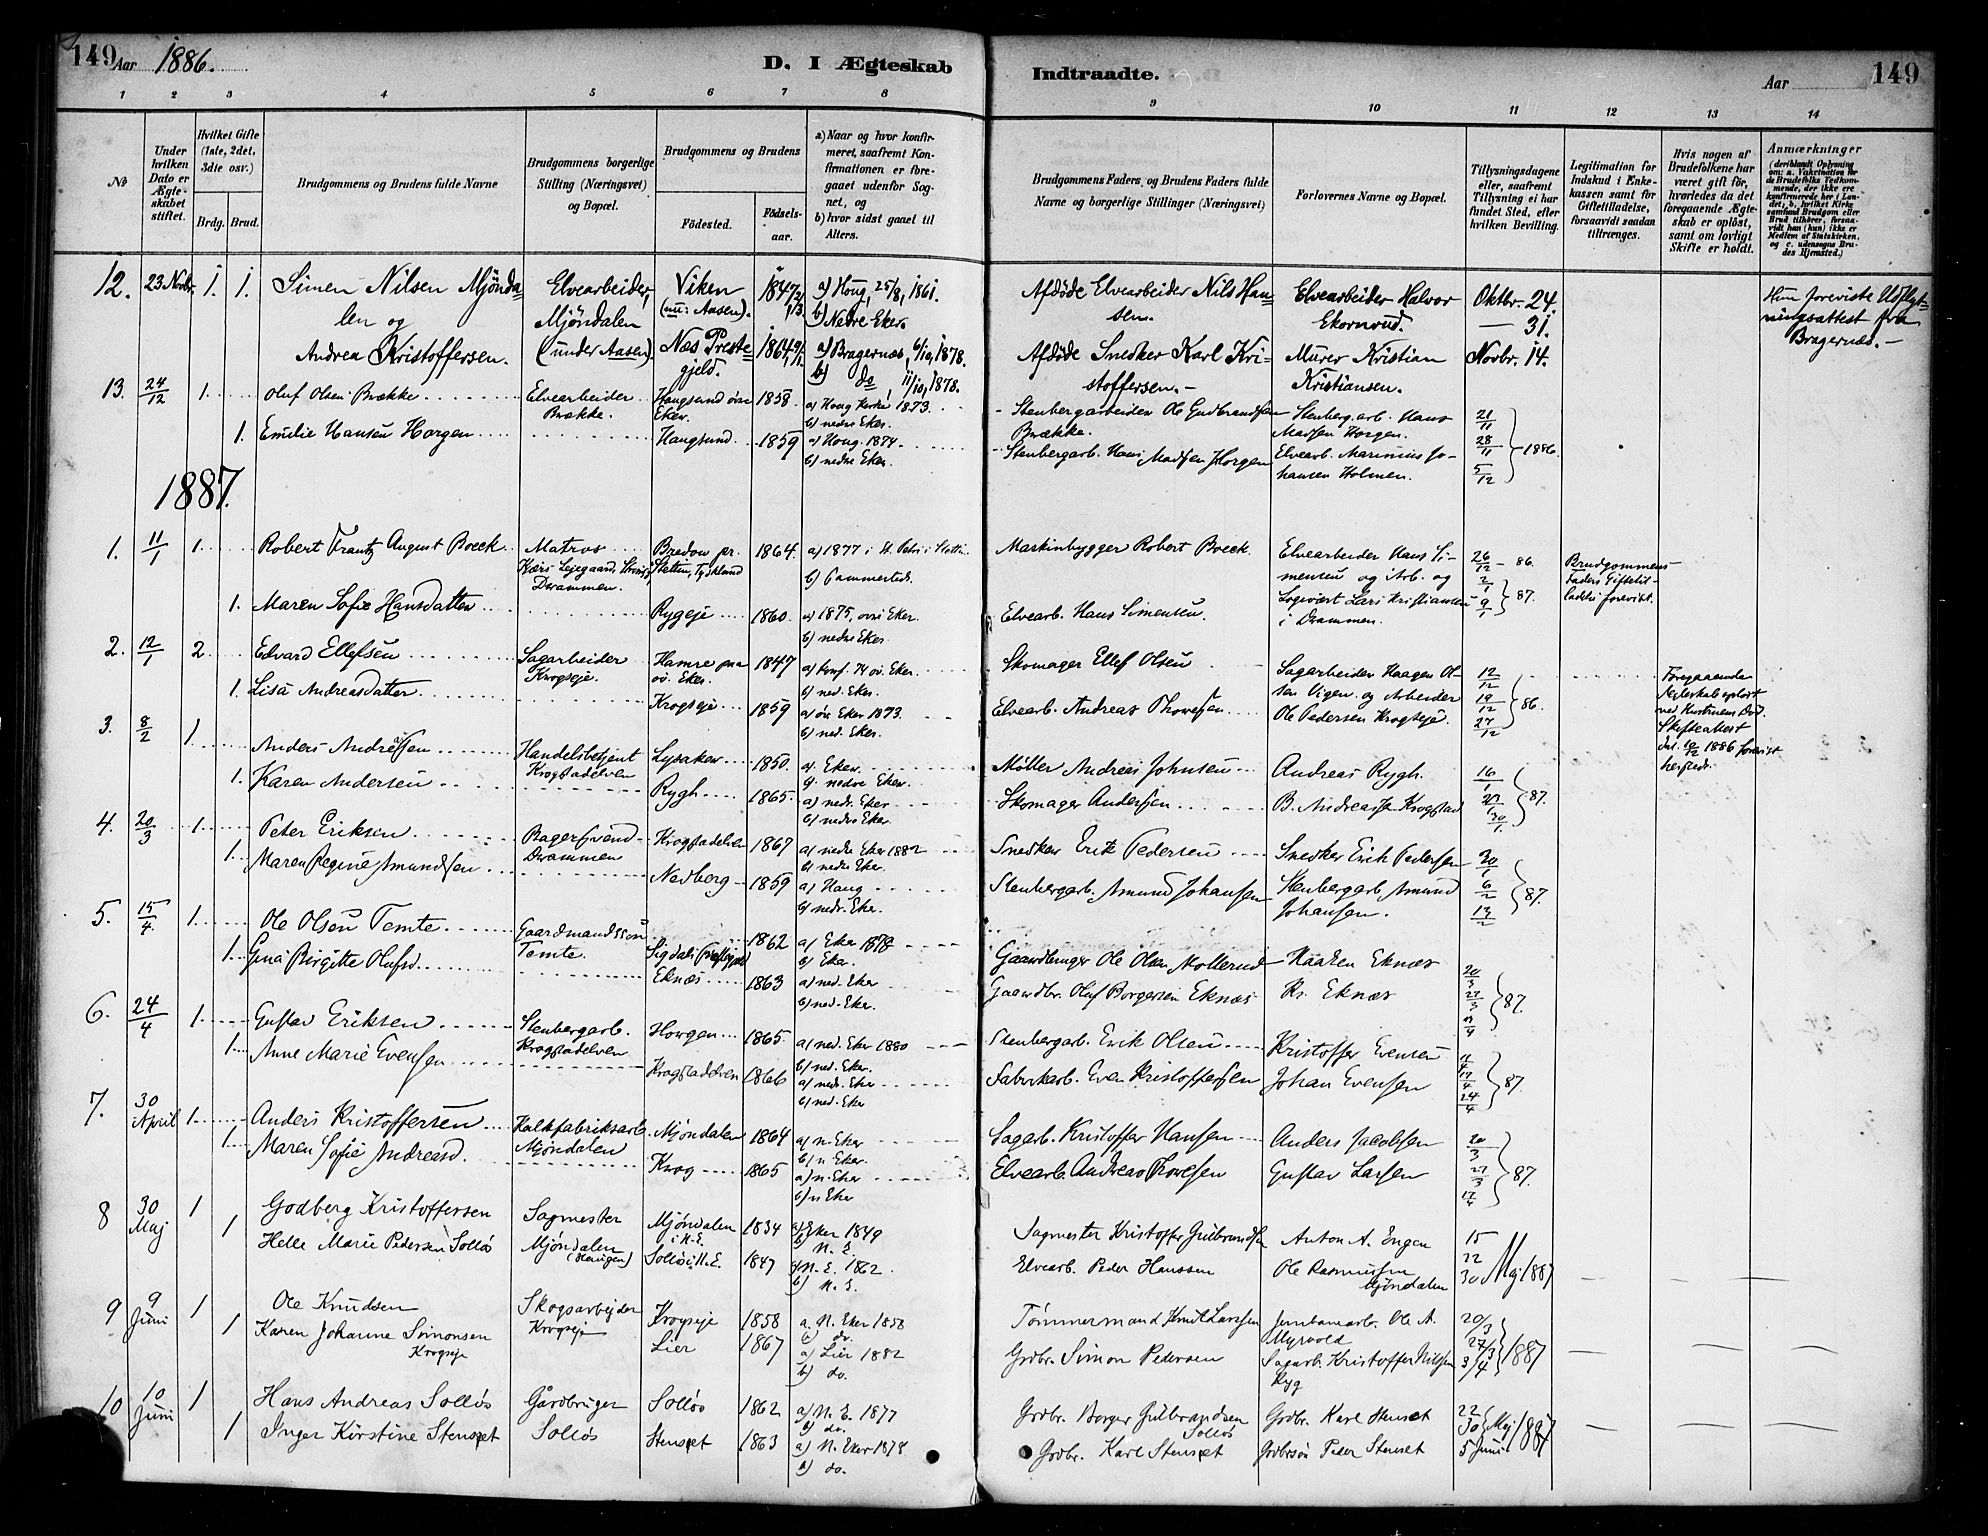 149
Aar 1886.
D. I Ægteskab
Indtraadte.
Aar
149
1 2 3 4 5 6 7 8 9 10 11 12 13 14
No
Under hvilken Dato er Ægteskabet stiftet.
Hvilket Gifte (1ste, 2det, 3dte osv.)
Brdg. Brud.
Brudgommens og Brudens fulde Navne
Brudgommens borgerlige Stilling (Næringsvei) og Bopæl.
Brudgommens og Brudens
Födested.
Födselsaar.
a) Naar og hvor konfirmeret, saafremt Konfirmationen er foregaaet udenfor Sognet, og
b) hvor sidst gaaet til Alters.
Brudgommens Faders og Brudens Faders fulde Navne og borgerlige Stillinger (Næringsvei)
Forlovernes Navne og Bopæl.
Tillysningsdagene eller, saafremt Tillysning ei har fundet Sted, efter hvilken Bevilling.
Legitimation for Indskud i Enkekassen samt for Giftetilladelse, forsaavidt saadan tiltrænges.
Hvis nogen af Brudefolkene har været gift för, hvorledes da det foregaaende Ægteskab er oplöst, samt om lovligt Skifte er holdt.
Anmærkninger
(deriblandt Oplysning om: a. Vaksination for de Brudefolks Vedkommende, der ikke ere konfirmerede her i Landet; b. hvilket Kirkesamfund Brudgom eller Brud tilhörer, forsaavidt han (hun) ikke er Medlem af Statskirken, og c. udensogns Brudes Hjemsted.)
12. 23 Novbr. 1. 1. Simen Nilsen Mjönda- Elvearbeider, Viken 1847 a) Houg, 25/8, 1861. Afdöde Elvearbeider Nils Han- Elvearbeider Halvor Oktbr. 24. Hun foreviste Udflyt-
len og Mjöndalen (nu: Aasen). b) Nedre Eker. sen. Ekornrud. — 31. ningsattest fra
Andrea Kristoffersen. (under Aasen). Næs Preste- 1864 a) Bragernæs, 6/10, 1878. Afdöde Snedker Karl Kri- Murer Kristian Novbr. 14. Bragernæs. —
gjeld. b) do 11/10, 1878. stoffersen. — Kristiansen.
13. 24/12 1. Oluf Olsen Brække Elvearbeider Haugsund övre 1858. a) Houg Kirke 1873. Stenbergarbeider Ole Gudbrandsen Stenberg.arb. Hans 21/11
Brække. Eker. b) nedre Eker. Brække. Madsen Horgen. 28/11 1886.
1. Emilie Hansen Horgen Haugsund 1859 a) Houg. 1874. Stenbergarb. Hans Madsen Horgen Elvearb. Marinius Jo- 5/12
b) nedre Eker. hansen Holmen.
1887.
1. 11/1 1. Robert Frantz August Boeck Matros Bredow pr. 1864. a) 1877 i St. Petri i Stettin Maskinbygger Robert Boeck. Elvearbeider Hans Si- 26/12 - 86. Brudgommens
Stettin, Tyskland b) sammested. mensen og Arb. og 2/1 Faders Giftetil-
Drammen. Logivært Lars Kristiansen 9/1 87. ladelse forevist.
1. Maren Sofie Hansdatter Rygeje 1860. a) 1875, övre Eker. Elvearb. Hans Simensen. i Drammen.
b) nedre Eker
2. 12/1 2 Edvard Ellefsen Sagarbeider Hamre paa 1847 a) konf. 74 öv. Eker. Skomager Ellef Olsen Sagarbeider Haagen Ol- 12/12 Foregaaende
Krogseje. öv. Eker. b) ned. Eker. sen Vigen og Arbeider 19/12 86. Ægteskab oplöst
1. Lisa Andreasdatter Krogseje 1859 a) övr Eker 1873. Elvearb. Andreas Thowesen Ole Pedersen Krogseje. 27/12 ved Kustruens Död.
b) ned. Eker. Skifteattest
3. 8/2 1. Anders Andreasen Handelsbetjent Lysaker 1850. a) Eker. Möller Andreas Johnsen Andreas Rygh. 16/1 dat. 10/12 1886 forevist
Krogstadelven b) nedre Eker.
1. Karen Andersen Rygh 1865. a) nedr. Eker Skomager Andersen B. Andreasen Krogstad 27/1 87.
b) nedre Eker. 30/1.
4. 20/3 1. Peter Eriksen Bagersvend Krogstadelven 1867 a) nedre Eker 1882 Snedker Erik Pedersen Snedker Erik Pedersen 30/1
Drammen b) nedre Eker.
1. Maren Regine Amundsen Nedberg 1859 a) Haug Stenbergarb. Amund Johansen Stenbergarb. Amund 6/2 87.
b) nedr. Eker. Johansen. 13/2
5. 15/4. 1. Ole Olsen Temte Gaardmandssön Sigdal 1862 a) Eker 1878 Gaardbruger Ole Olsen Mollerud Haaken Eknæs 20/3
Temte. b) Eker.
1. Gina Birgitte Olufsd. Eknæs 1863 a) ned. Eker Gaardbr. Oluf Borgersen Eknæs Kr. Eknæs 27/3 87.
b) ned. Eker.
6. 24/4 1. Gustav Eriksen Stenbergarb. Horgen 1865. a) ned. Eker 1880 Stenbergarb. Erik Olsen Kristoffer Evensen
Krogstadelven b) ned. Eker.
1. Anne Marie Evensen Krogstadelven 1866 a) ned. Eker Fabrikarb. Even Kristoffersen Johan Evensen 17/4 87.
b) ned. Eker 24/4
7. 30 April 1. Anders Kristoffersen Kalkfabriksarb. Mjöndalen 1864 a) n. Eker Sagarb. Kristoffer Hansen Anders Jacobsen 20/3
Mjöndalen b) n. Eker.
1. Maren Sofie Andreasd. Krog 1865 a) n. Eker Elvearb. Andreas Thowesen Gustav Larsen 27/3 87.
b) n Eker 17/4
8 30 Maj 1 Godberg Kristoffersen Sagmester Mjöndalen 1834 a) Eker 1849 Sagmester Kristoffer Gulbrandsen Anton A. Engen 15
i N.E. b) N. E.
1 Helle Marie Pedersen Solløs Mjöndalen Solløs i N. E. 1847 a) N. E. 1862. Elvearb. Peder Hanssen Ole Rasmussen 22
b) N. E. Mjöndalen 30 Maj 1887
9 9 Juni 1 Ole Knudsen Skogsarbejder Krogseje 1858 a. N. Eker 1858 Tømmermand Knut Larssen Jernbanearb. Ole A. 20/3
Krogseje b) do. Myrvold 27/3 1887
1 Karen Johanne Simonsen Lier 1867 a) Lier 1882 Grdbr. Simon Pedersen Sagarb. Kristoffer Nilsen 3/4
Krogseje b) do. Ryg
10 10 Juni 1 Hans Andreas Solløs Gårdbruger Solløs 1862 a) N. E. 1877 Grdbr. Borger Gulbrandsen Grdbr. Karl Stenset 22
Solløs b) do. Solløs 30 Maj 1887
1 Inger Kirstine Stenset Stenset 1863 a) N. Eker 1878 Grdbr. Karl Stenset Grdbrsön Peder Stenset 5 Juni
b) do.